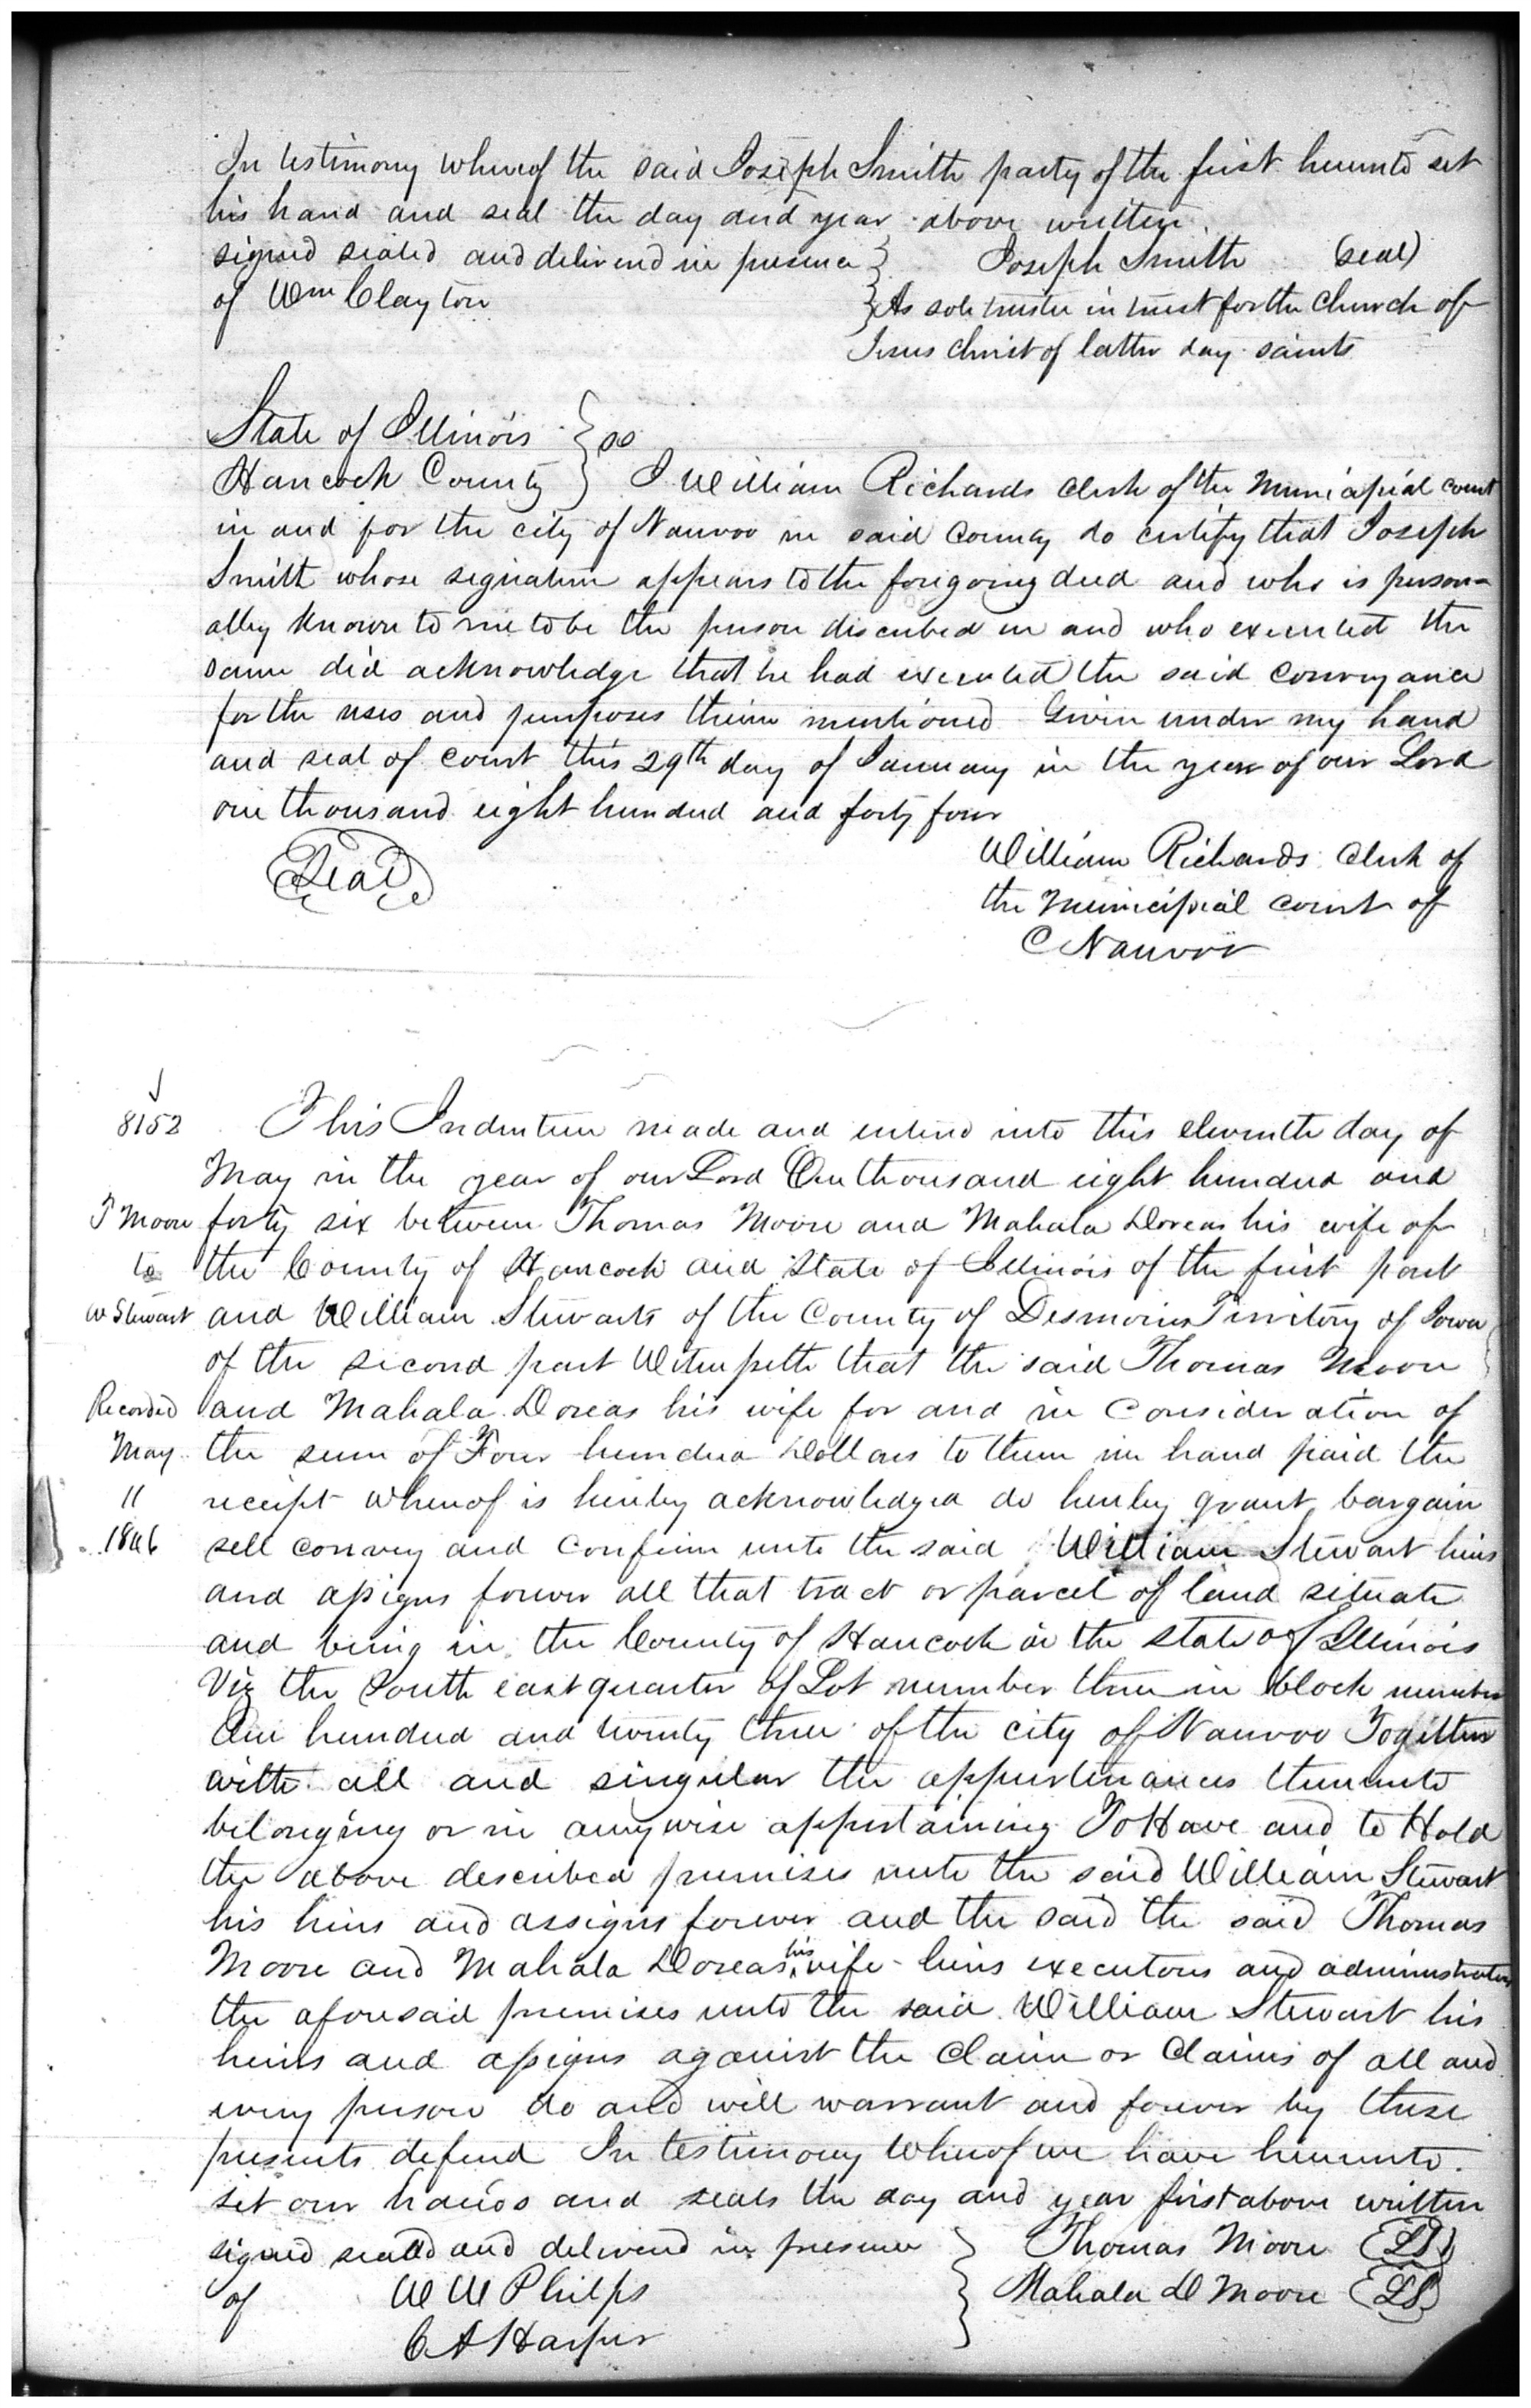 In testimony whereof the said Joseph Smith party of the first hereunto set
his hand and seal the day and year above written.
signed sealed and delivered in presence } Joseph Smith (seal)
of Wm Clayton } As sole trustee in trust for the Church of
Jesus Christ of latter day saints
State of Illinois } ss
Hancock County } I William Richards clerk of the Municipial court
in and for the city of Nauvoo in said County do certify that Joseph
Smith whose signature appears to the foregoing deed and who is person-
ally known to me to be the person discribed in and who executed the
same did acknowledge that he had executed the said conveyance
for the uses and purposes therein mentioned Given under my hand
and seal of court this 29th day of January in the year of our Lord
one thousand eight hundred and forty four
Seal
William Richards clerk of
the Municipial court of
C Nauvoo
8152 This Indenture made and entered into this eleventh day of
May in the year of our Lord One thousand eight hundred and
T Moore forty six between Thomas Moore and Mahala Dorcas his wife of
to the County of Hancock and State of Illinois of the first part
W Stewart and William Stewart of the County of Desmoines Territory of Iowa
of the second part Witnesseth that the said Thomas Moore
Recorded and Mahala Dorcas his wife for and in Consideration of
May the sum of Four hundred Dollars to them in hand paid the
11 receipt whereof is hereby acknowledged do hereby grant bargain
1846 sell convey and confirm unto the said William Stewart heirs
and assigns forever all that tract or parcel of land situate
and being in the County of Hancock in the state of Illinois
Viz the South east quarter of Lot number three in block number
One hundred and twenty three of the city of Nauvoo Together
with all and singular the appurtenances thereunto
belonging or in anywise appertaining To Have and to Hold
the above described premises unto the said William Stewart
his heirs and assigns forever and the said the said Thomas
Moore and Mahala Dorcas his wife heirs executors and administrators
the aforesaid premises unto the said William Stewart his
heirs and assigns against the claim or claims of all and
every person do and will warrant and forever by these
presents defend In testimony whereof we have hereunto.
set our hands and seals the day and year first above written
signed sealed and delivered in presence } Thomas Moore (LS)
of W W Phelps } Mahala D Moore (LS)
C A Harper